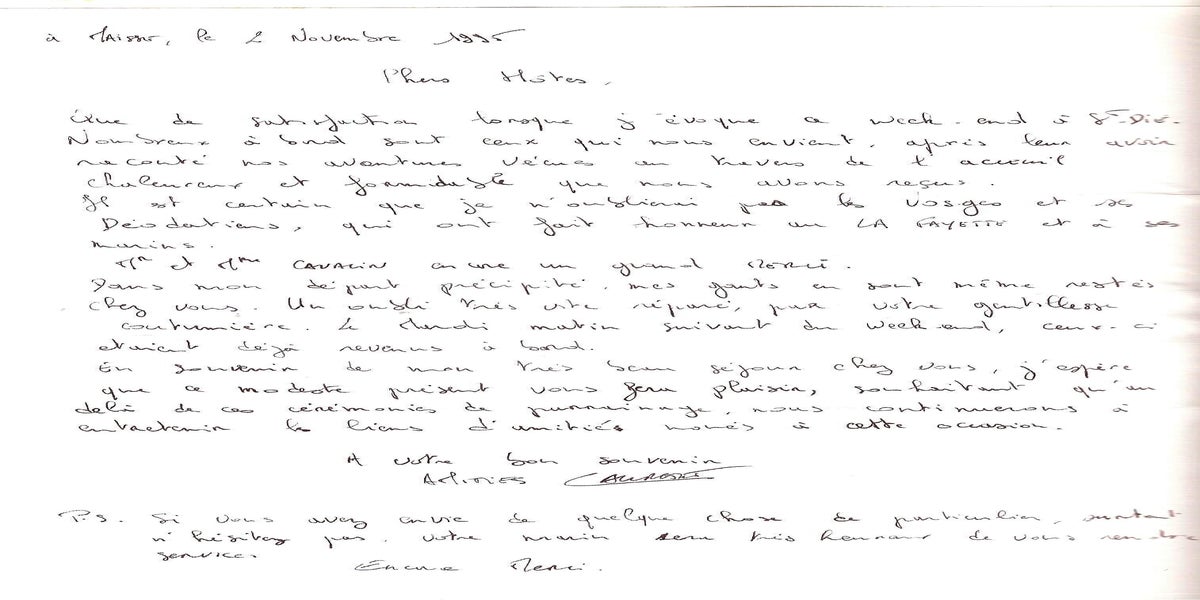 à Maisse, le 2 Novembre 1995
Chers Hôtes,
Que de satisfaction lorsque j'évoque ce week-end à St-Dié.
Nombreux à bord sont ceux qui nous envient, après leur avoir
raconté nos aventures vécues au travers de l'accueil
chaleureux et formidable que nous avons reçus.
Il est certain que je n'oublierai pas les Vosges et ses
Déodatiens, qui ont fait honneur au LA FAYETTE et à ses
marins.
Mr et Mme CAVALIN encore un grand MERCI.
Dans mon départ précipité, mes gants en sont même restés
chez vous. Un oubli très vite réparé, par votre gentillesse
coutumière. Le Mardi matin suivant du week-end, ceux-ci
étaient déjà revenus à bord.
En souvenir de mon très beau séjour chez vous, j'espère
que ce modeste présent vous fera plaisir, souhaitant qu'au
delà de ces cérémonies de parrainage, nous continuerons à
entretenir les liens d'amitiés noués à cette occasion.
A votre bon souvenir
Amitiés
P.S. Si vous avez envie de quelque chose de particulier, surtout
n'hésitez pas, votre marin sera très heureux de vous rendre
service.
Encore Merci.